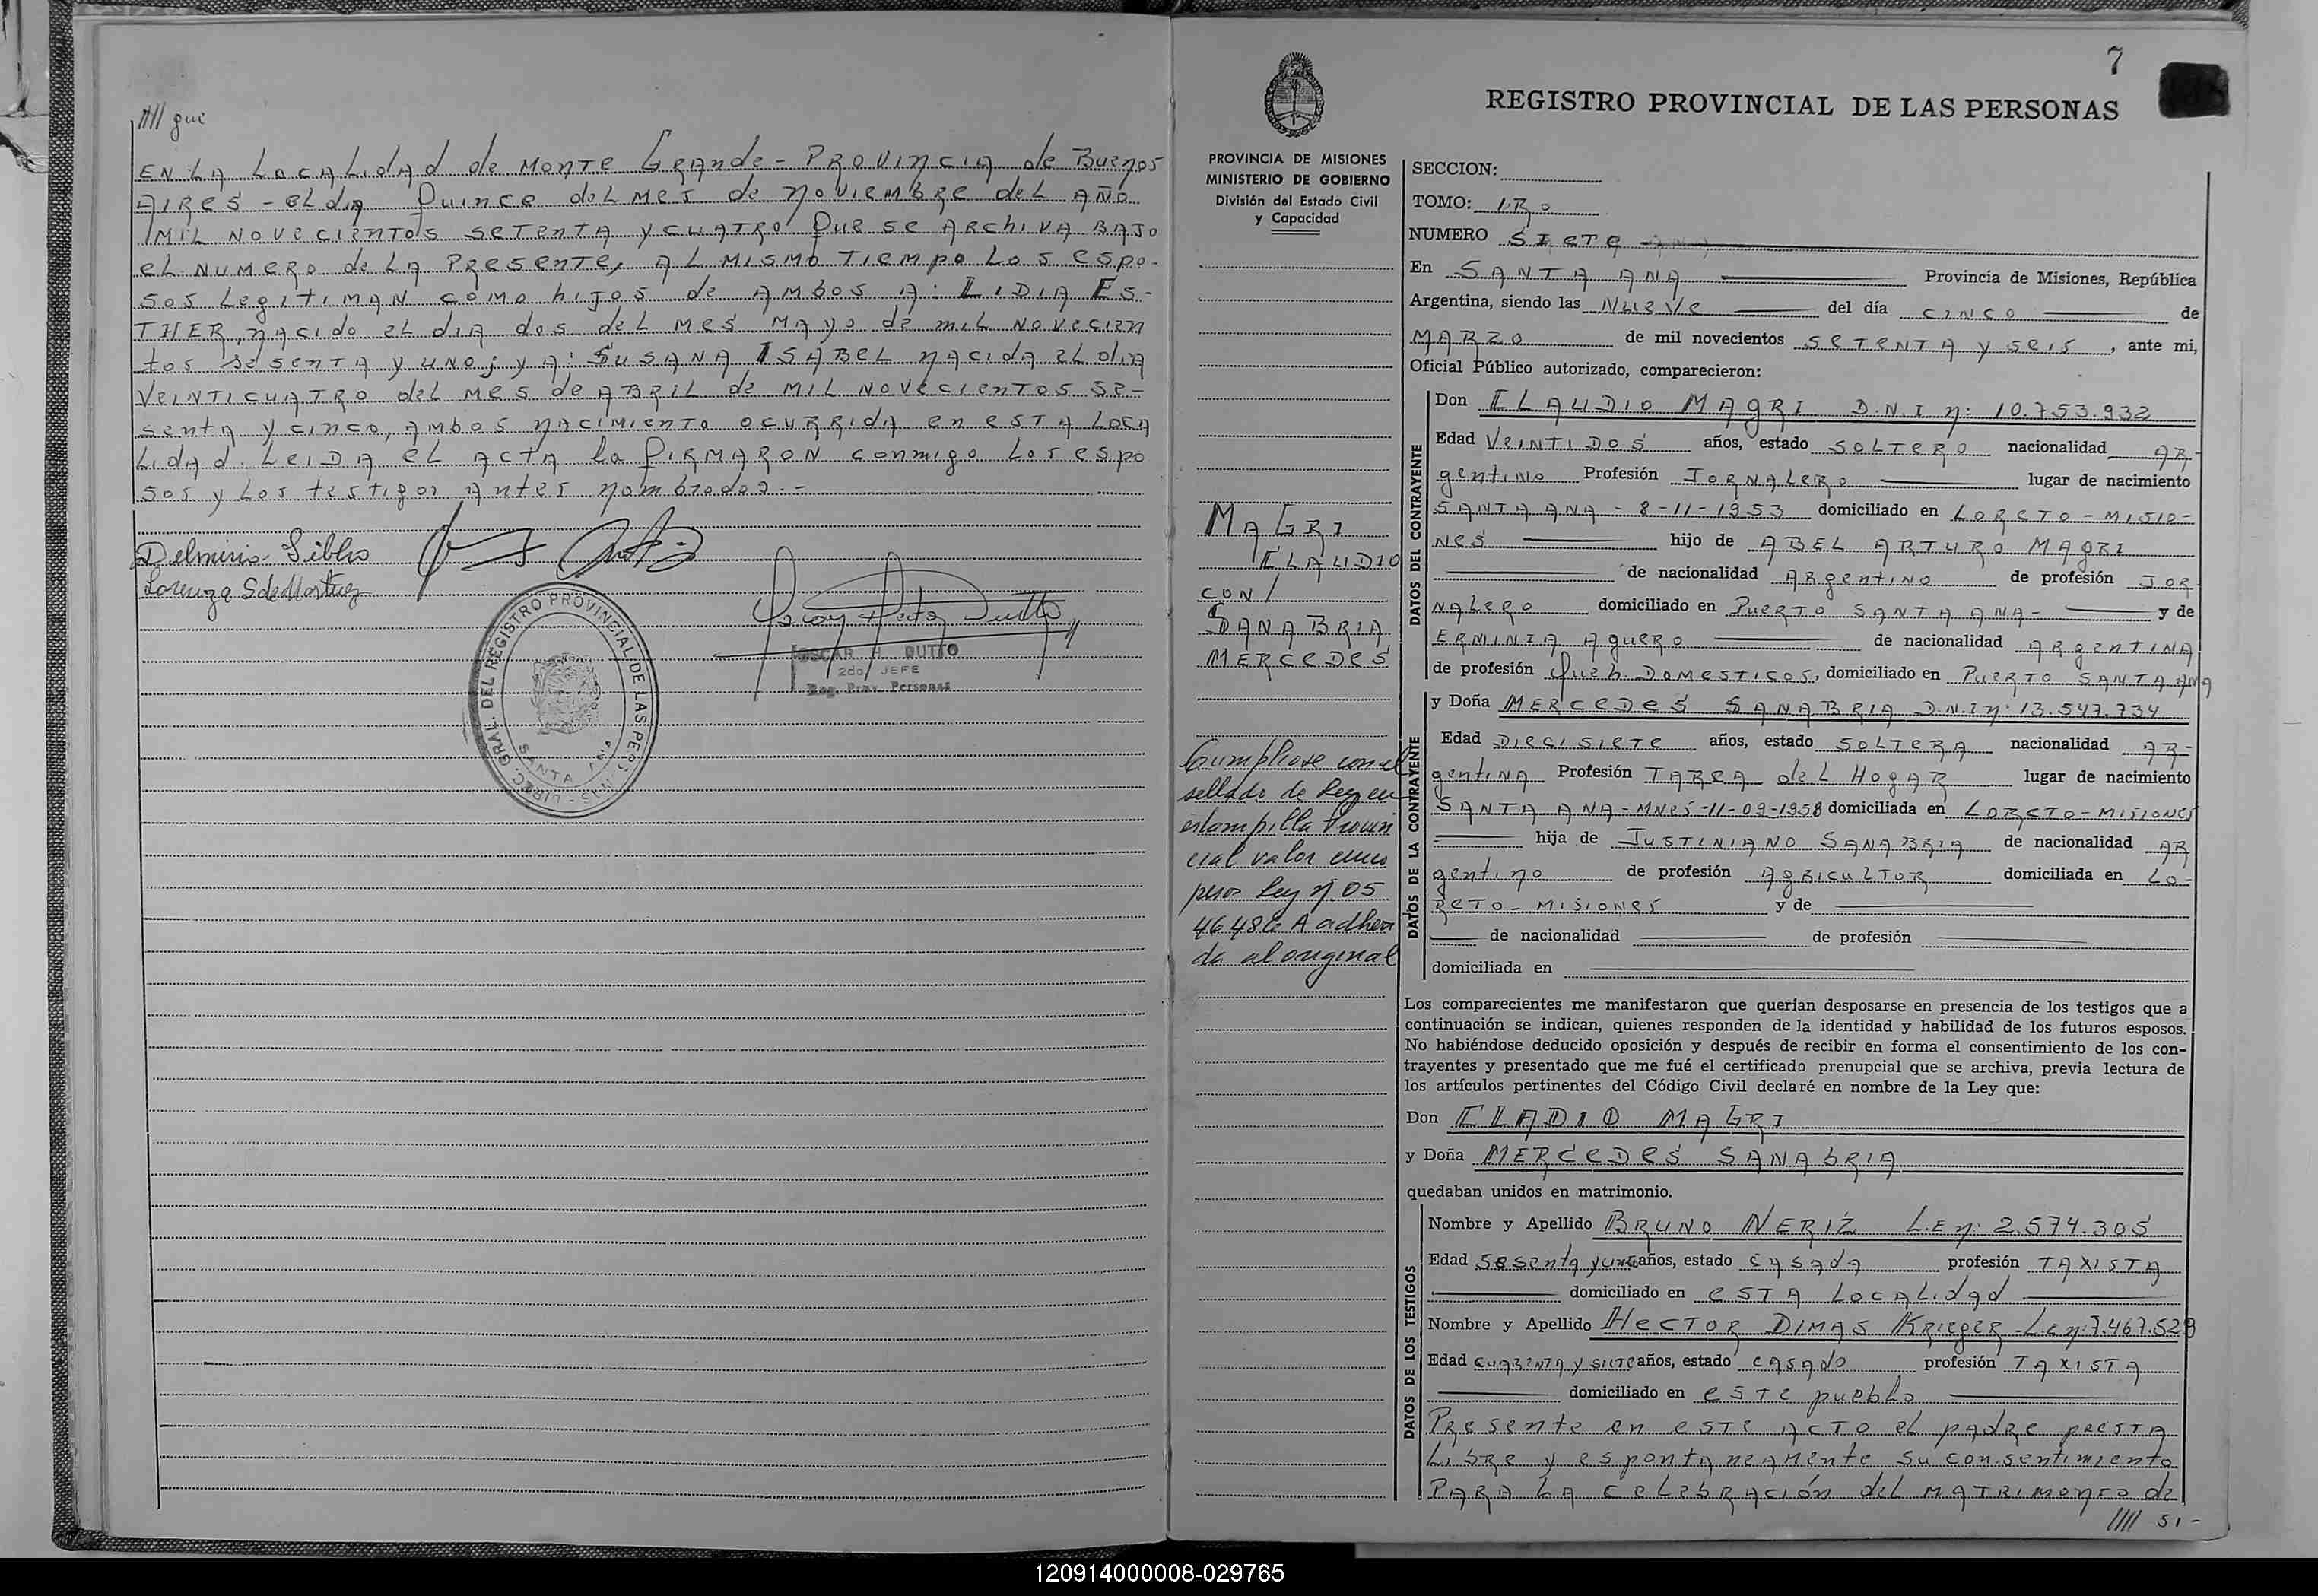 //// que
EN LA LOCALidAd de MONTE GRANde - PROVINCIA de Buenos
AIRES - el dia Quince del mes de NOVIEMBRE del AÑO
MIL NOVECIENTOS SETENTA Y CUATRO Que se ARCHIVA BAJO
el NUMERO de LA PRESENTE, AL MISMO TIEMPO LOS ESPO-
SOS LegITIMAN COMO hIJOS de AMBOS A: LIDIA ES-
THER, NAcido el dia dos del mes MAYO de MIL NOVECIEN
tos sesENTA y UNO; y A: SUSANA ISABEL NACIDA el dia
VEINTICUATRO del MES de ABRIL de MIL NOVECIENTOS SE-
sentA y cinco, AMbos NACIMIENTO OCURRIdA en ESTA LOCA
LidAd. LEIDA el ACTA la FIRMARON conmigo Los espo
sos y Los testigos Antes nombrados.-
Lorenza S de Martinez
DIREC. GRAL. DEL REGISTRO PROVINCIAL DE LAS PERSONAS
SANTA ANA
OSCAR H. DUTTO
2do. JEFE
Reg. Prov. Personas
7
REGISTRO PROVINCIAL DE LAS PERSONAS
PROVINCIA DE MISIONES
MINISTERIO DE GOBIERNO
División del Estado Civil
y Capacidad
MAGRI
CLAUDIO
CON/
SANABRIA
MERCEDES
Cumpliose con el
sellado de Ley en
estampilla Provin
cial valor cinco
pesos Ley Nº 05
46486 A adheri
da al original
SECCION:
TOMO: 1RO
NUMERO SIETE
En SANTA ANA Provincia de Misiones, República
Argentina, siendo las NUEVE del día CINCO de
MARZO de mil novecientos SETENTA Y SEIS, ante mi,
Oficial Público autorizado, comparecieron:
DATOS DEL CONTRAYENTE
Don CLAUDIO MAGRI D.N.I Nº: 10.753.932
Edad VEINTIDOS años, estado SOLTERO nacionalidad AR-
gentino Profesión JORNALERO lugar de nacimiento
SANTA ANA - 8-11-1953 domiciliado en LORETO - MISIO-
NES hijo de ABEL ARTURO MAGRI
de nacionalidad ARgentINO de profesión JOR
NALERO domiciliado en PUERTO SANTA ANA- y de
ERMINIA AGUERO de nacionalidad ARgentINA
de profesión Queh. DOMESTICOS, domiciliado en PUERTO SANTA ANA
DATOS DE LA CONTRAYENTE
y Doña MERCEDES SANABRIA D.N.I Nº: 13.547.734
Edad DIECISIETE años, estado SOLTERA nacionalidad AR-
gentINA Profesión TAREA del HOGAR lugar de nacimiento
SANTA ANA - MNES - 11-09-1958 domiciliada en LORETO - MISIONES
hija de JUSTINIANO SANABRIA de nacionalidad AR
gentino de profesión AGRICULTOR domiciliada en LO-
RETO - MISIONES y de
de nacionalidad de profesión
domiciliada en
Los comparecientes me manifestaron que querían desposarse en presencia de los testigos que a
continuación se indican, quienes responden de la identidad y habilidad de los futuros esposos.
No habiéndose deducido oposición y después de recibir en forma el consentimiento de los con-
trayentes y presentado que me fué el certificado prenupcial que se archiva, previa lectura de
los artículos pertinentes del Código Civil declaré en nombre de la Ley que:
Don CLADIO MAGRI
y Doña MERCEDES SANABRIA
quedaban unidos en matrimonio.
DATOS DE LOS TESTIGOS
Nombre y Apellido BRUNO NERIZ L.E Nº: 2.574.305
Edad sesenta y uno años, estado casada profesión TAXISTA
domiciliado en ESTA LOCALidad
Nombre y Apellido HECTOR DIMAS KRIEGER - L.E Nº: 7.467.529
Edad CUARENTA Y SIETE años, estado CASAdo profesión TAXISTA
domiciliado en este pueblo
PRESente en este ACTO el padre presta
Libre y espontaneamente su consentimiento
PARA LA CELEbRACión del MATRIMONIO de
//// SI-
120914000008-029765